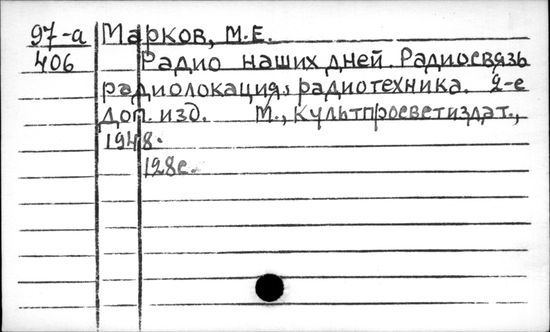 97-а Марков, М.Е.
406 Радио наших дней. Радиосвязь
радиолокация, радиотехника. 2-е
доп. изд. М., Культпросветиздат.,
1948.
128с.